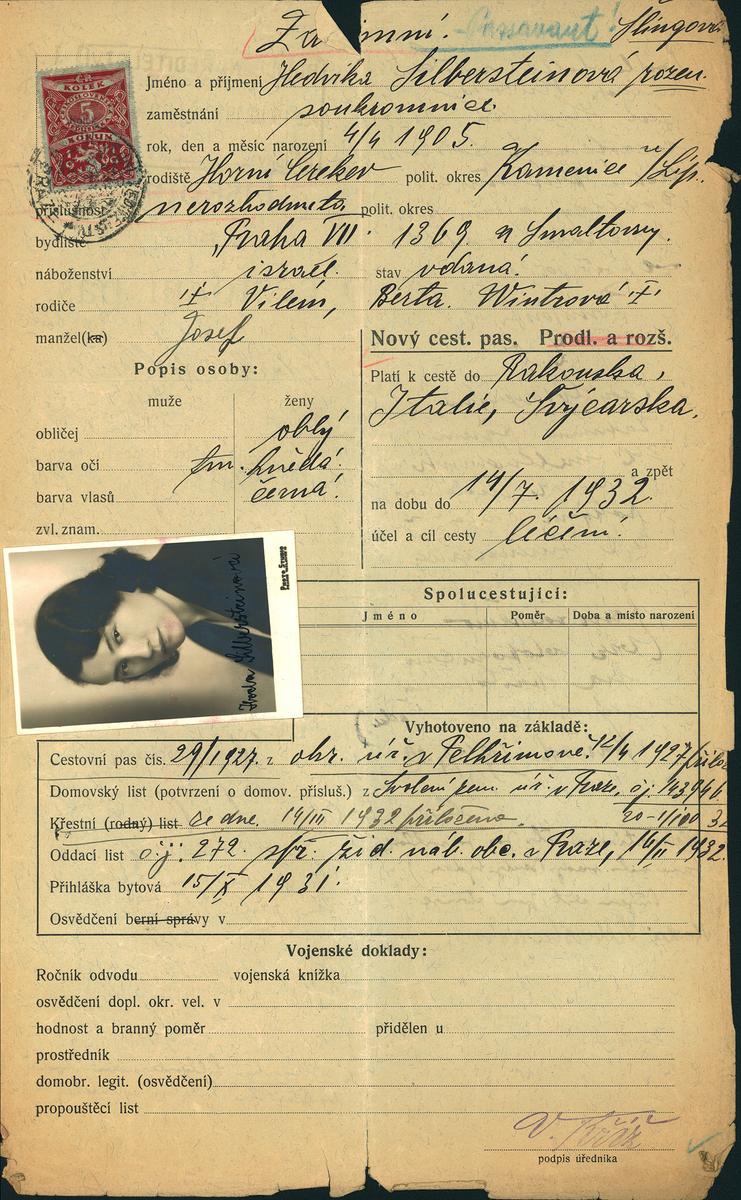 Passavant! Šlingová
ČR.
KOLEK
5
KORUN
Jméno a příjmení Hedvika Silbersteinová rozen.
zaměstnání soukromnice.
rok, den a měsíc narození 4/4 1905.
rodiště Horní Cerekev polit. okres Kamenice n/Lip.
příslušnost nerozhodnuta polit. okres
bydliště Praha VII. 1369.
náboženství israel. stav vdaná.
rodiče Vilém, Berta Wintrová
manžel(ka) Josef
Nový cest. pas. Prodl. a rozš.
Popis osoby:
Platí k cestě do Rakouska,
Italie, Švýcarska.
muže ženy
obličej oblý
barva očí tm. hnědá.
barva vlasů černá.
zvl. znam.
a zpět
na dobu do 14/7. 1932.
účel a cíl cesty léčení.
Spolucestující:
Jméno Poměr Doba a místo narození
Silbersteinová
Vyhotoveno na základě:
Cestovní pas čís. 29/1927. z okr. úř. v Pelhřimově. 12/4 1927
Domovský list (potvrzení o domov. přísluš.) z Svolení zem. úř. v Praze, čj. 143946
Křestní (rodný) list ze dne. 14/III 1932 přiloženo.
Oddací list čj. 272. žid. náb. obc. v Praze, 16/II 1932.
Přihláška bytová 15/X 1931.
Osvědčení berní správy v
Vojenské doklady:
Ročník odvodu vojenská knížka
osvědčení dopl. okr. vel. v
hodnost a branný poměr přidělen u
prostředník
domobr. legit. (osvědčení)
propouštěcí list
V. Kříž
podpis úředníka